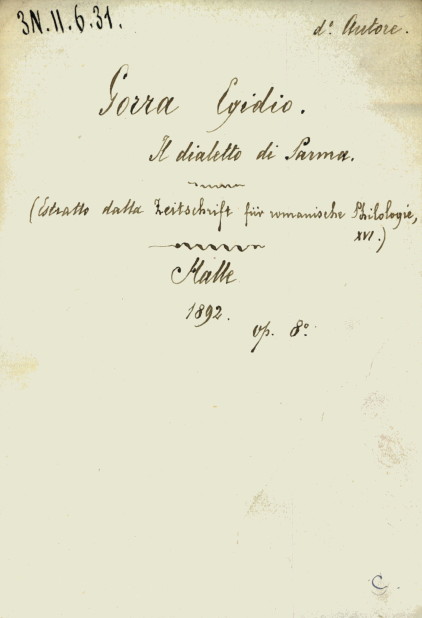 3N.II.6.31.
d.º Autore.
Gorra Egidio.
Il dialetto di Parma.
(Estratto dalla Zeitschrift für romanische Philologie,
XVI.)
Halle
1892.
op. 8º
C